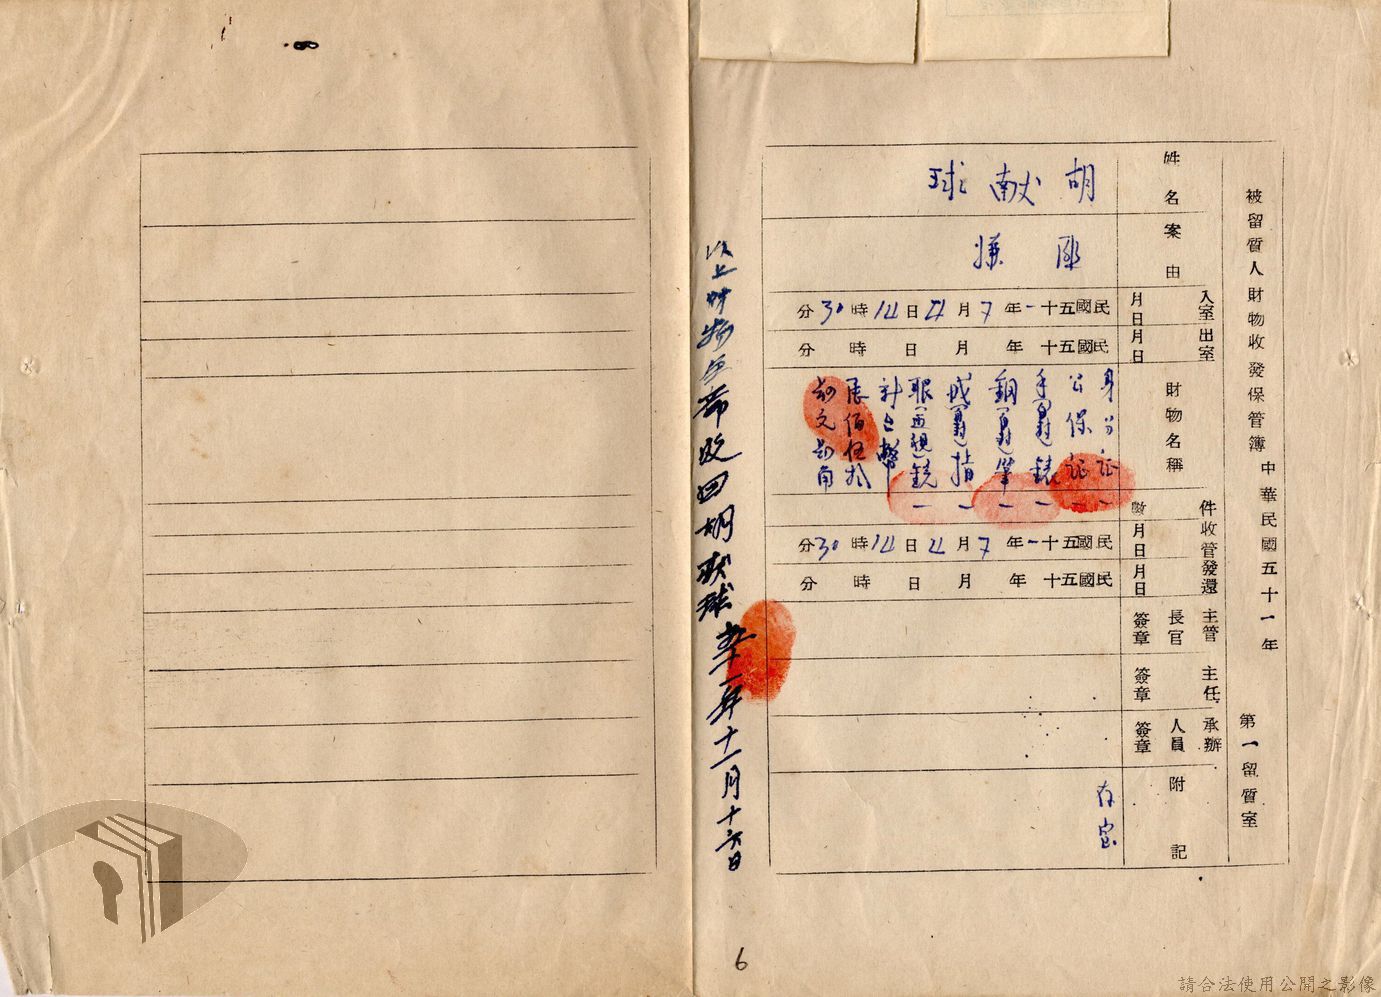 被留質人財物收發保管簿 中華民國五十一年 第一留質室
姓名
胡献球
案由
匪嫌
入室月日
民國五十一年7月4日14時30分
出室月日
民國五十 年 月 日 時 分
財物名稱
件數
身分証 一
公保証 一
手錶 一
鋼筆 一
戒指 一
眼鏡 一
計台幣
佰伍拾
元 角
收管月日
民國五十一年7月4日14時30分
發還月日
民國五十 年 月 日 時 分
主管長官簽章
主任簽章
承辦人員簽章
附記
存室
以上財物全部收回胡献球 五十一年十一月十六日
6
請合法使用公開之影像